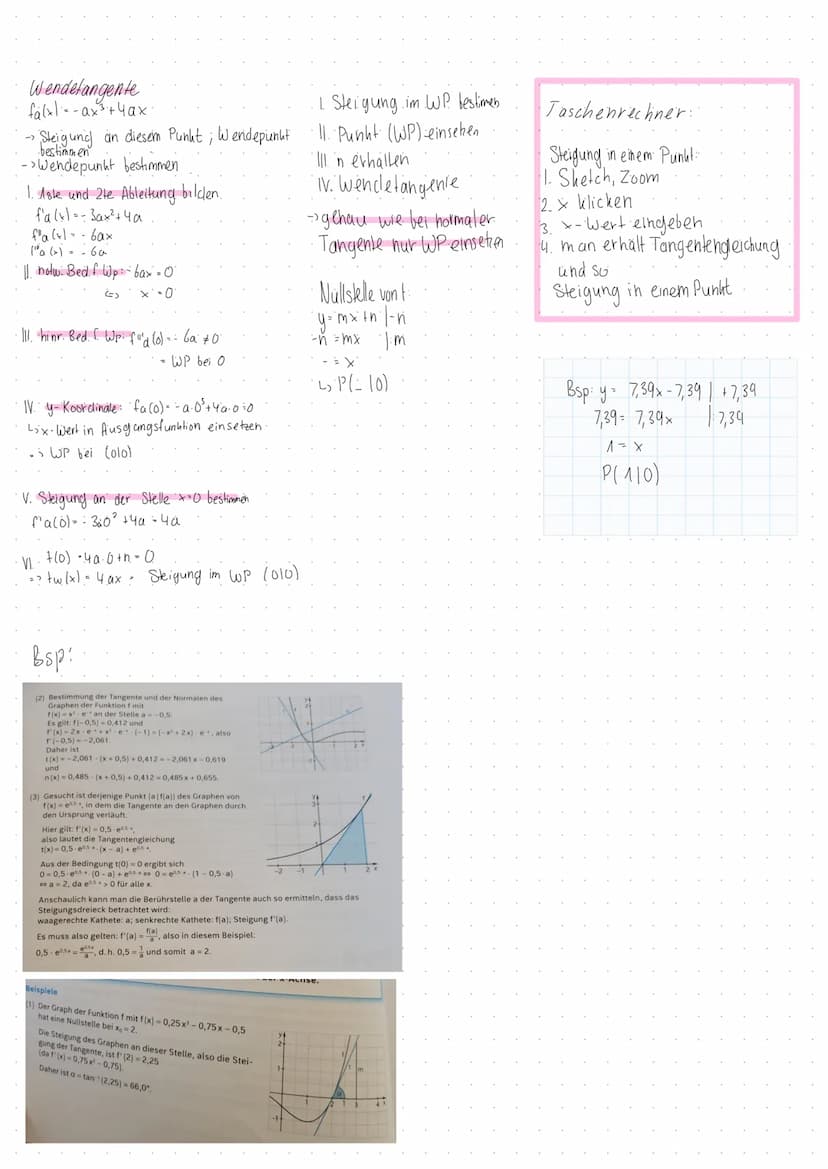 Wendetangente
fa(x) = -ax³+4ax
→ Steigung an diesem Punkt ; Wendepunkt
bestimmen
-> Wendepunkt bestimmen
I. 1ste und 2te Ableitung bilden
f'a(x) = -3ax²+4a
f''a(x) = -6ax
f'''a(x) = -6a
II. notw. Bed. f. Wp: -6ax = 0
<=> x = 0
III. hinr. Bed. f. Wp: f'''a(0) = -6a ≠ 0
= WP bei 0
IV. y-Koordinate: fa(0) = -a·0³+4a·0=0
↳ x-Wert in Ausgangsfunktion einsetzen
=> WP bei (0|0)
V. Steigung an der Stelle x=0 bestimmen
f'a(0) = -3·0² +4a = 4a
VI. t(0) = 4a·0+n = 0
=> tw(x) = 4ax = Steigung im WP (0|0)
I. Steigung im WP bestimmen
II. Punkt (WP) einsetzen
III n erhalten
IV. Wendetangente
→ genau wie bei normaler
Tangente nur WP einsetzen
Nullstelle von t
y = mx+n |-n
-n = mx |:m
- = x
↳ P(_ |0)
Taschenrechner:
Steigung in einem Punkt:
1. Sketch, Zoom
2. x klicken
3. x-Wert eingeben
4. man erhält Tangentengleichung
und so
Steigung in einem Punkt
Bsp: y = 7,39x - 7,39 | +7,39
7,39 = 7,39x |: 7,39
1 = x
P(1|0)
Bsp:
(2) Bestimmung der Tangente und der Normalen des
Graphen der Funktion f mit
f(x) = x² · e⁻ˣ an der Stelle a = -0,5:
Es gilt: f(-0,5) ≈ 0,412 und
f'(x) = 2x · e⁻ˣ + x² · e⁻ˣ · (-1) = (-x² + 2x) · e⁻ˣ, also
f'(-0,5) ≈ -2,061.
Daher ist
t(x) = -2,061 · (x + 0,5) + 0,412 = -2,061x - 0,619
und
n(x) = 0,485 · (x + 0,5) + 0,412 = 0,485x + 0,655.
(3) Gesucht ist derjenige Punkt (a|f(a)) des Graphen von
f(x) = e^0,5·x, in dem die Tangente an den Graphen durch
den Ursprung verläuft.
Hier gilt: f'(x) = 0,5 · e^0,5·x,
also lautet die Tangentengleichung
t(x) = 0,5 · e^0,5·a · (x - a) + e^0,5·a.
Aus der Bedingung t(0) = 0 ergibt sich
0 = 0,5 · e^0,5·a · (0 - a) + e^0,5·a ⇔ 0 = e^0,5·a · (1 - 0,5 · a)
⇔ a = 2, da e^0,5·x > 0 für alle x.
Anschaulich kann man die Berührstelle a der Tangente auch so ermitteln, dass das
Steigungsdreieck betrachtet wird:
waagerechte Kathete: a; senkrechte Kathete: f(a); Steigung f'(a).
Es muss also gelten: f'(a) = f(a)/a, also in diesem Beispiel:
0,5 · e^0,5·a = e^0,5·a/a, d.h. 0,5 = 1/a und somit a = 2.
x-Achse.
Beispiele
(1) Der Graph der Funktion f mit f(x) = 0,25x³ - 0,75x - 0,5
hat eine Nullstelle bei x₀ = 2.
Die Steigung des Graphen an dieser Stelle, also die Stei-
gung der Tangente, ist f'(2) = 2,25
(da f'(x) = 0,75x² - 0,75).
Daher ist α = tan⁻¹(2,25) ≈ 66,0°.